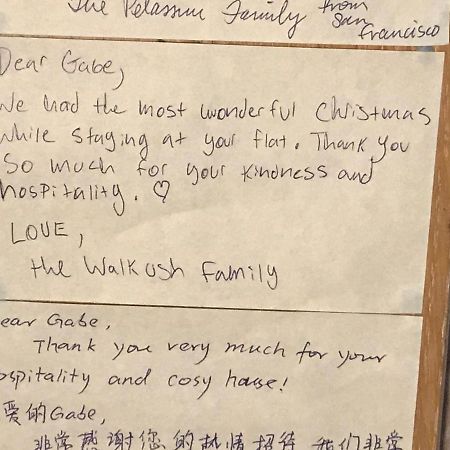 The Pelassun Family from
San
Francisco
Dear Gabe,
We had the most wonderful Chistmas
while staying at your flat. Thank you
so much for your kindness and
hospitality. ♡
LOVE,
the Walkush Family
ear Gabe,
Thank you very much for your
ospitality and cosy house!
爱的Gabe,
非常感谢您的热情招待 我们非常